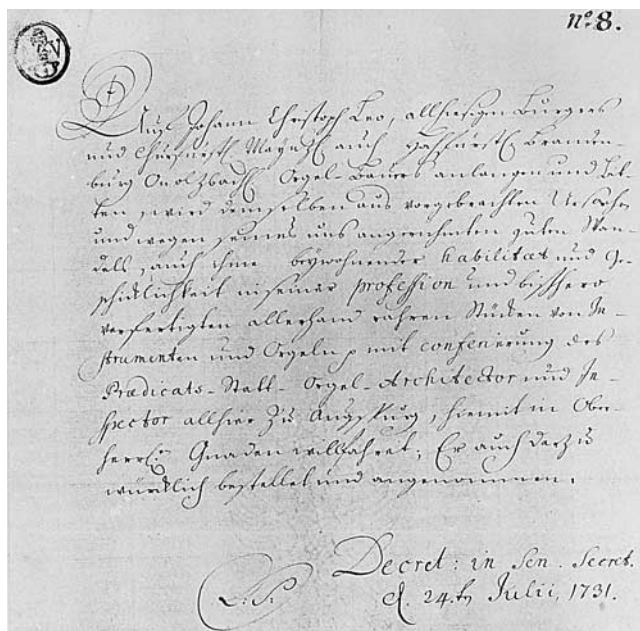 nº 8.
Auf Johann Christoph Leo, allhiesigen Burgers
und Churfürstl. Maynzl. auch Hochfürstl. Branden-
burg Onolzbachl. Orgel-Bauers anlangen und bit-
ten, wird demselben aus vorgebrachten Ursachen
und wegen seines uns angerühmten guten Wan-
dels, auch ihme beywohnender habilitæt und Ge-
schicklichkeit in seiner profession und bisshero
verfertigten allerhand rahren Stücken von In-
strumenten und Orgeln p mit conferierung des
Prædicats-Statt-Orgel-Architector und In-
spector allhier zu Augspurg, hiemit in Ober-
herrl. Gnaden willfahret, Er auch darzu
würcklich bestellet und angenommen.
Decret: in Sen. Secret.
d. 24.ten Julii, 1731.
L: S: